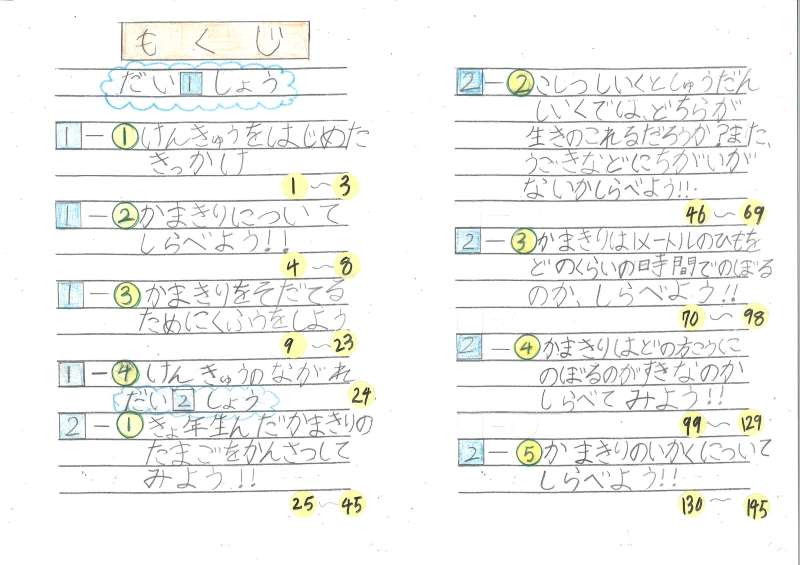 もくじ
だい1しょう
1-①けんきゅうをはじめた
きっかけ
1〜3
1-②かまきりについて
しらべよう!!
4〜8
1-③かまきりをそだてる
ためにくふうをしよう
9〜23
1-④けんきゅうのながれ
24
だい2しょう
2-①きょ年生んだかまきりの
たまごをかんさつして
みよう!!
25〜45
2-②こしつしいくとしゅうだん
しいくでは、どちらが
生きのこれるだろうか?また、
うごきなどにちがいが
ないかしらべよう!!
46〜69
2-③かまきりは1メートルのひもを
どのくらいの時間でのぼる
のか、しらべよう!!
70〜98
2-④かまきりはどの方こうに
のぼるのがすきなのか
しらべてみよう!!
99〜129
2-⑤かまきりのいかくについて
しらべよう!!
130〜145